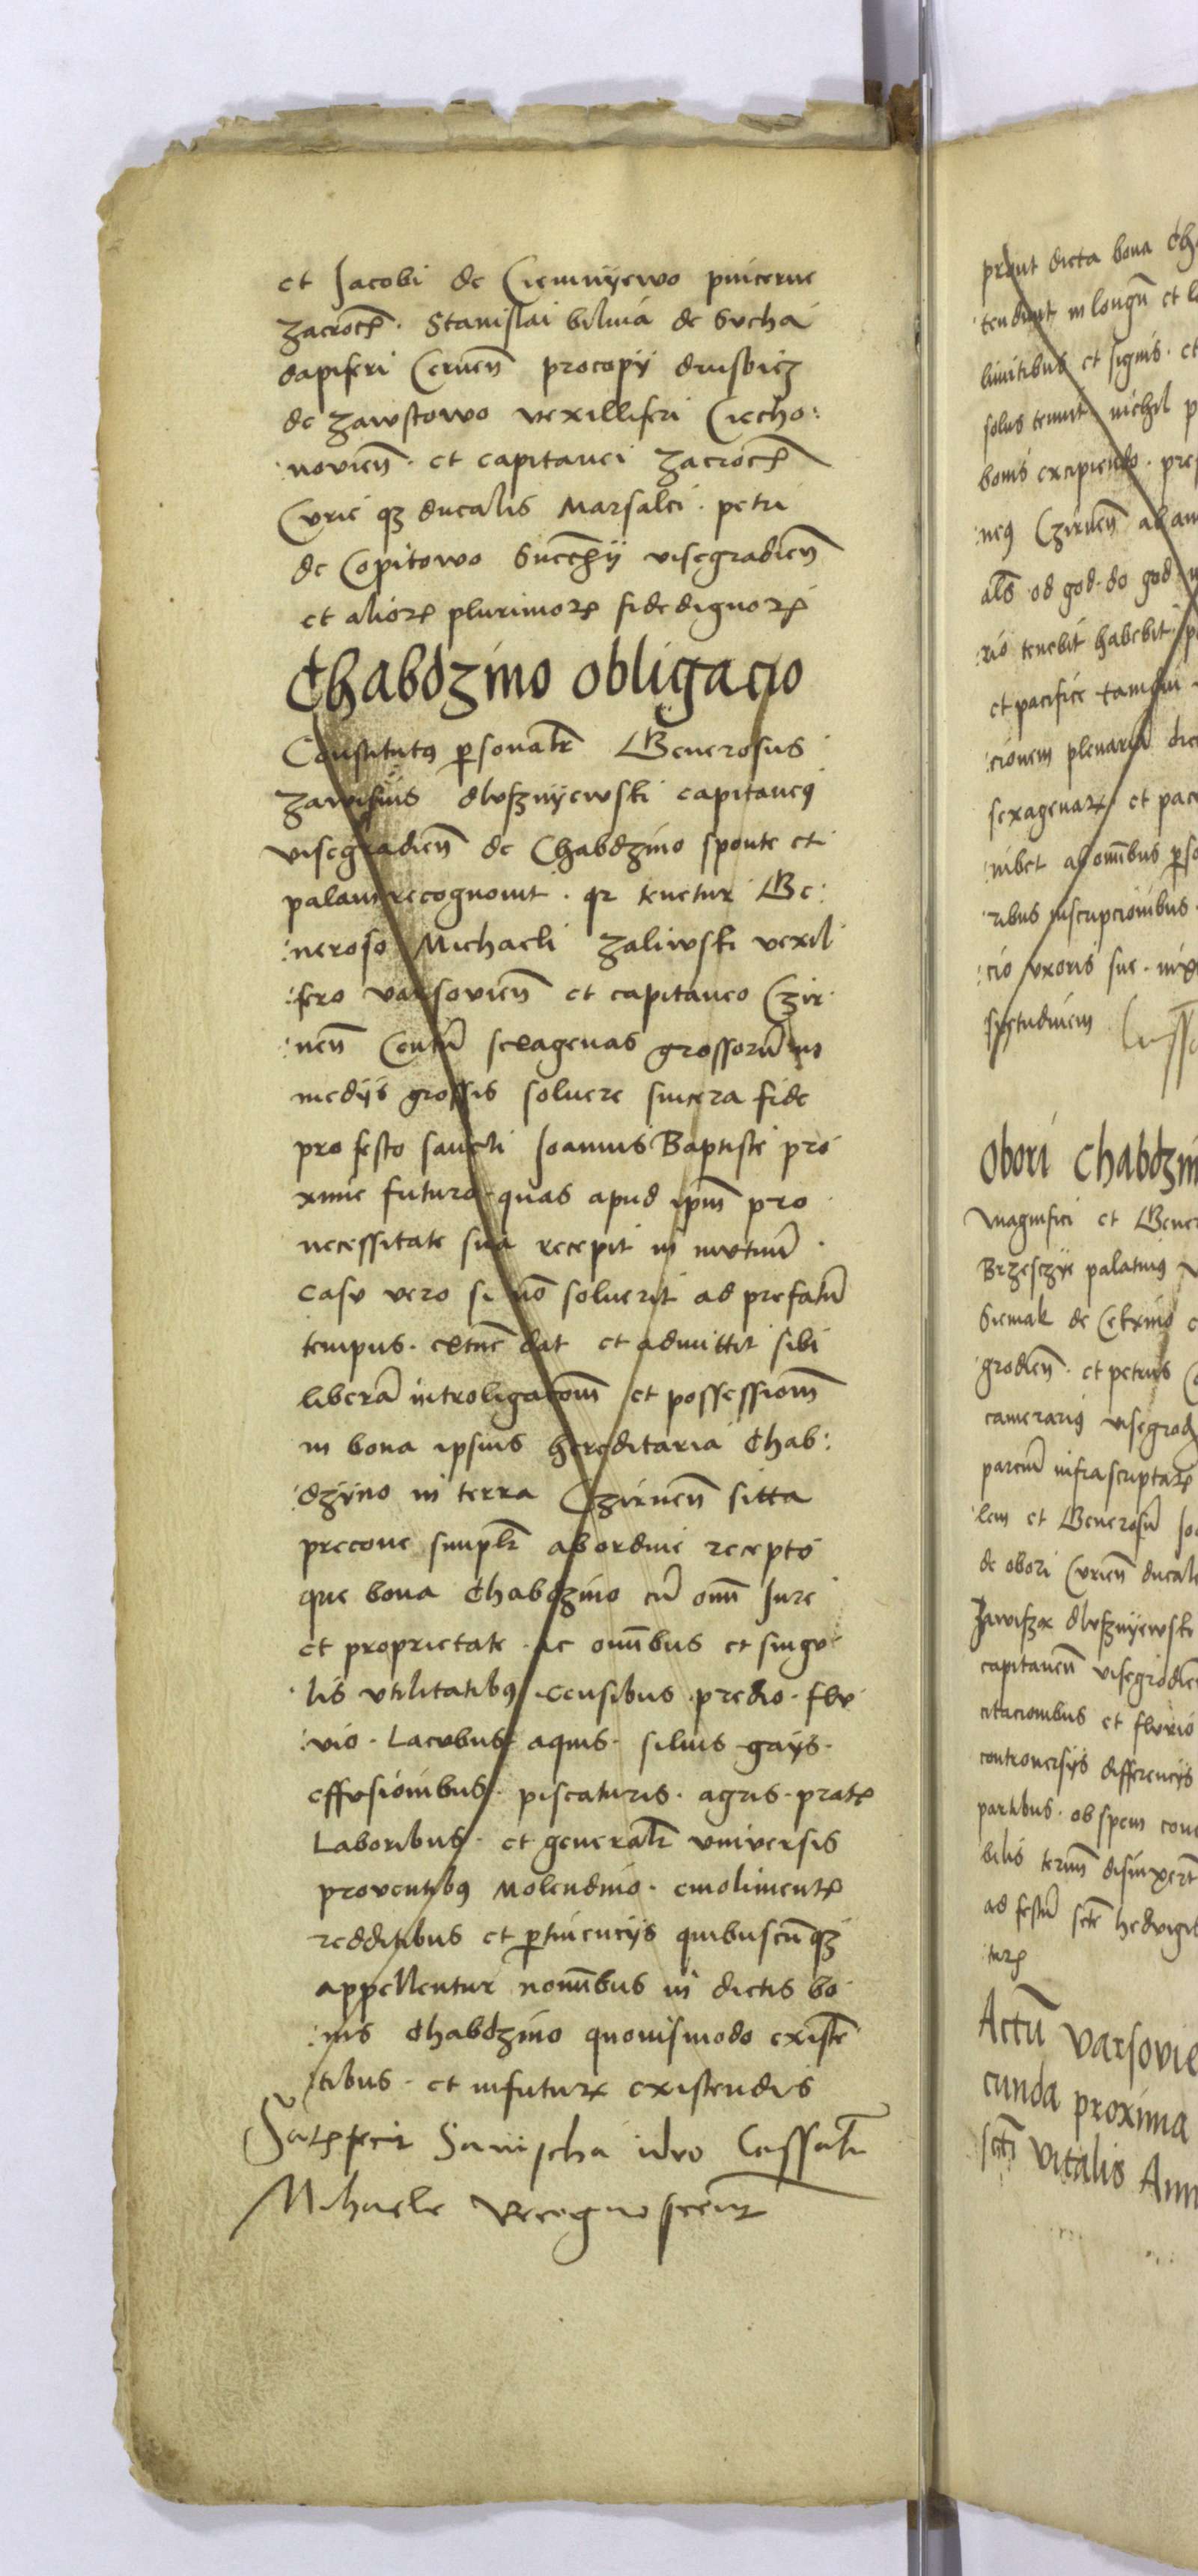 et Jacobi de Ciemnyewo pincerne
zacrocz̃. Stanislai bilina de Sucha
dapiferi Cernen̄ procopÿ
de zawstowo vexilliferi Ciecho:
:novien̄. et capitanei zacrocz̃
Curie qz ducalis Marsalci. petri
de Copitowo visegradien̄
et alioꝝ plurimoꝝ fidedignoꝝ
Chabdzino obligacio
Constitutꝯ ꝑsonal̃r Generosus
zawisius dlvsznyewski capitaneꝯ
visegradien̄ de Chabdzino sponte et
palam recognovit. qr tenetur Ge:
:neroso Michaeli zaliwski vexil
:fero varsovien̄ et capitaneo Czir
:nen̄ Centū sexagenas grossorū in
medÿs grossis solvere sincera fide
pro festo sancti Joannis Baptiste pro
xime futuro. quas apud ip̄m pro
necessitate sua recepit in mvtuū.
Casv vero si nō solverit ad prefatū
tempus. extūc dat et admittit sibi
liberā introligacōm et possessiōm
in bona ipsius hereditaria Chab:
:dzÿno in terra Czirnen̄ sitta
precone simpl̃r ab ordine recepto
que bona Chabdzino cū om̄i Jure
et proprietate. ac om̄ibus et singv
lis vtilitatibꝯ censibus. predio. flv
:vio. Lacvbus aquis. silvis gaÿs.
effvsionibus. piscaturis. agris. pratꝭ
Laboribus. et general̃r vniversis
proventibꝯ Molendino. emolimentꝭ
redditibus et ꝑtinencÿs quibuscūqz
appellentur nomībus in dictis bo
:nis Chabdzino quovismodo existē
:tibus. et infuturꝝ existendis
Satꝭfecit ideo Cassatur
Mihaele Recognoscente
prout dicta bona Ch
tendunt in longū et l
limitibus et signis. et
solus tenuit. nichil p
bonis excipiendo. pre
:neꝯ Czirnen̄ ab an
al̄s od god. do god.
rio tenebit habebit. p
et pacifice tamdiu
:cionem plenariā dic
sexagenaꝝ. et pac
:nibet ab om̄ibus ꝑso
:ribus inscripcionibus
:cio vxoris sue.

Obori Chabdzin
Magnifici et Gener
Brzesczye palatinꝯ v
Siemak de
grodien̄. et petrus C
camerariꝯ visegrod
parciū infrascriptaꝝ
:lem et Generosū Jo
de obori Curien̄ ducal
zawisza dlvsznyewski
capitaneū visegrodien
citacionibus et flvvio
controversÿs differencÿs
partibus. ob spem con
bilis
ad festū sctē hedvigis
:turꝭ
Actū varsovie
cunda proxima
sctī vitalis Ann